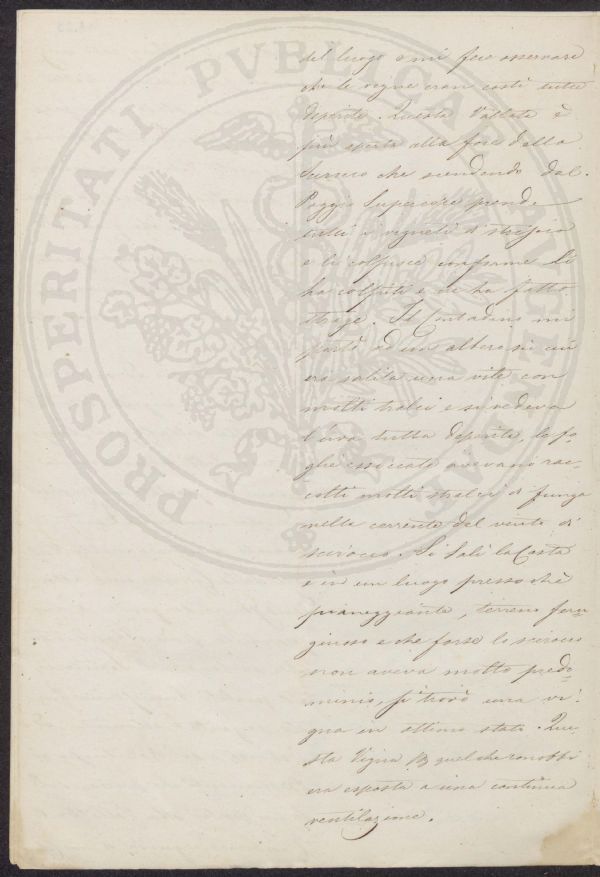 PROSPERITATI PVBLICAE AVGENDAE
del luogo e mi fece osservare
che le vigne eran così tutte
deperite. Questa Vallata è
più aperta alla foce dello
Scirocco che scendendo dal
Poggio Superiore prende
tutti i vigneti d'
e li colpisce conforme li
ha colpiti e ne ha fatto
strage. Il Contadino mi
portò ad un albero su cui
era salita una vite con
molti tralci e si vedeva
l'uva tutta deperita, le fo-
glie essiccate avevano rac-
colti molti stralci di fungo
nella corrente del vento di
scirocco. Si salì la Costa
e in un luogo presso chè
pianeggiante, terreno feru-
ginoso e che forse lo scirocco
non aveva molto predo-
minio, si trovò una vi-
gna in ottimo stato. Que-
sta Vigna p quel che conobbi
era esposta a una continua
ventilazione.